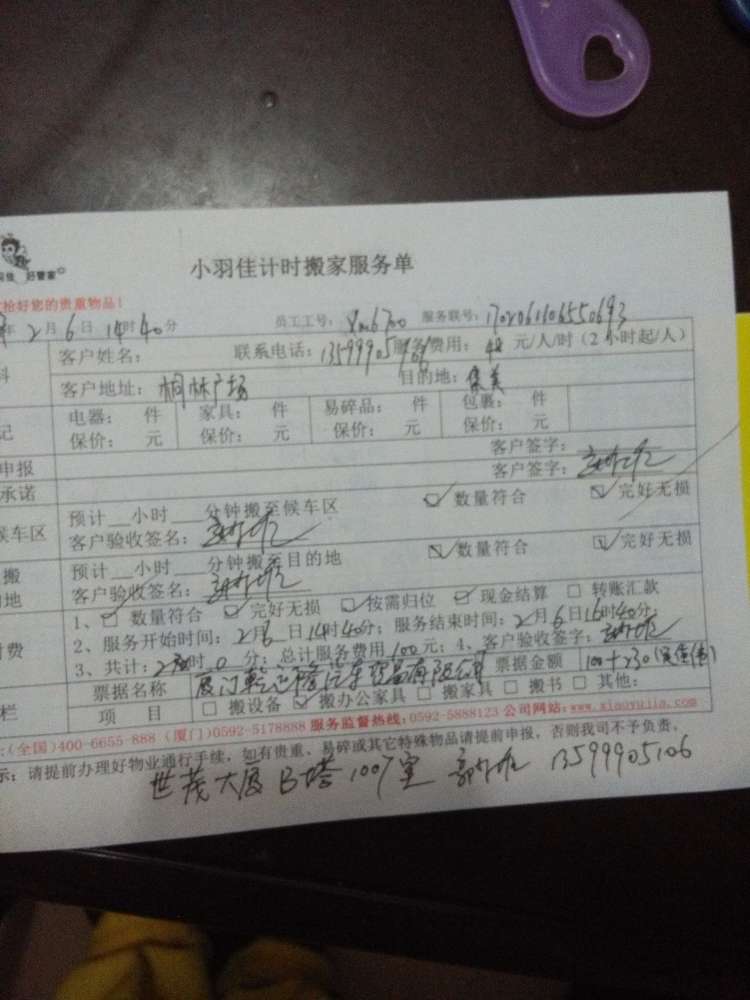 好管家
小羽佳计时搬家服务单
您的贵重物品！
年2月6日14时40分 员工工号： 服务联号：
客户姓名： 联系电话： 服务费用： 元/人/时（2小时起/人）
客户地址： 广场 目的地：集美
电器： 件 家具： 件 易碎品： 件 包裹： 件
保价： 元 保价： 元 保价： 元 保价： 元
申报 客户签字：
承诺 客户签字：
预计__小时__分钟搬至候车区 数量符合 完好无损
候车区 客户验收签名：
搬 预计__小时__分钟搬至目的地 数量符合 完好无损
地 客户验收签名：
1、 数量符合 完好无损 按需归位 现金结算 转账汇款
付费 2、服务开始时间：2月6日14时40分；服务结束时间：2月6日16时40分；
3、共计：2时0分；总计服务费用100元；4、客户验收签字：
票据名称 厦门 汽车 有限公司 票据金额 100+230
栏 项 目 搬设备 搬办公家具 搬家具 搬书 其他：
（全国）400-6655-888（厦门）0592-5178888 服务监督热线：0592-5888123 公司网站：www.xiaoyujia.com
示：请提前办理好物业通行手续，如有贵重、易碎或其它特殊物品请提前申报，否则我司不予负责。
世茂大厦B塔1007室 13599905106